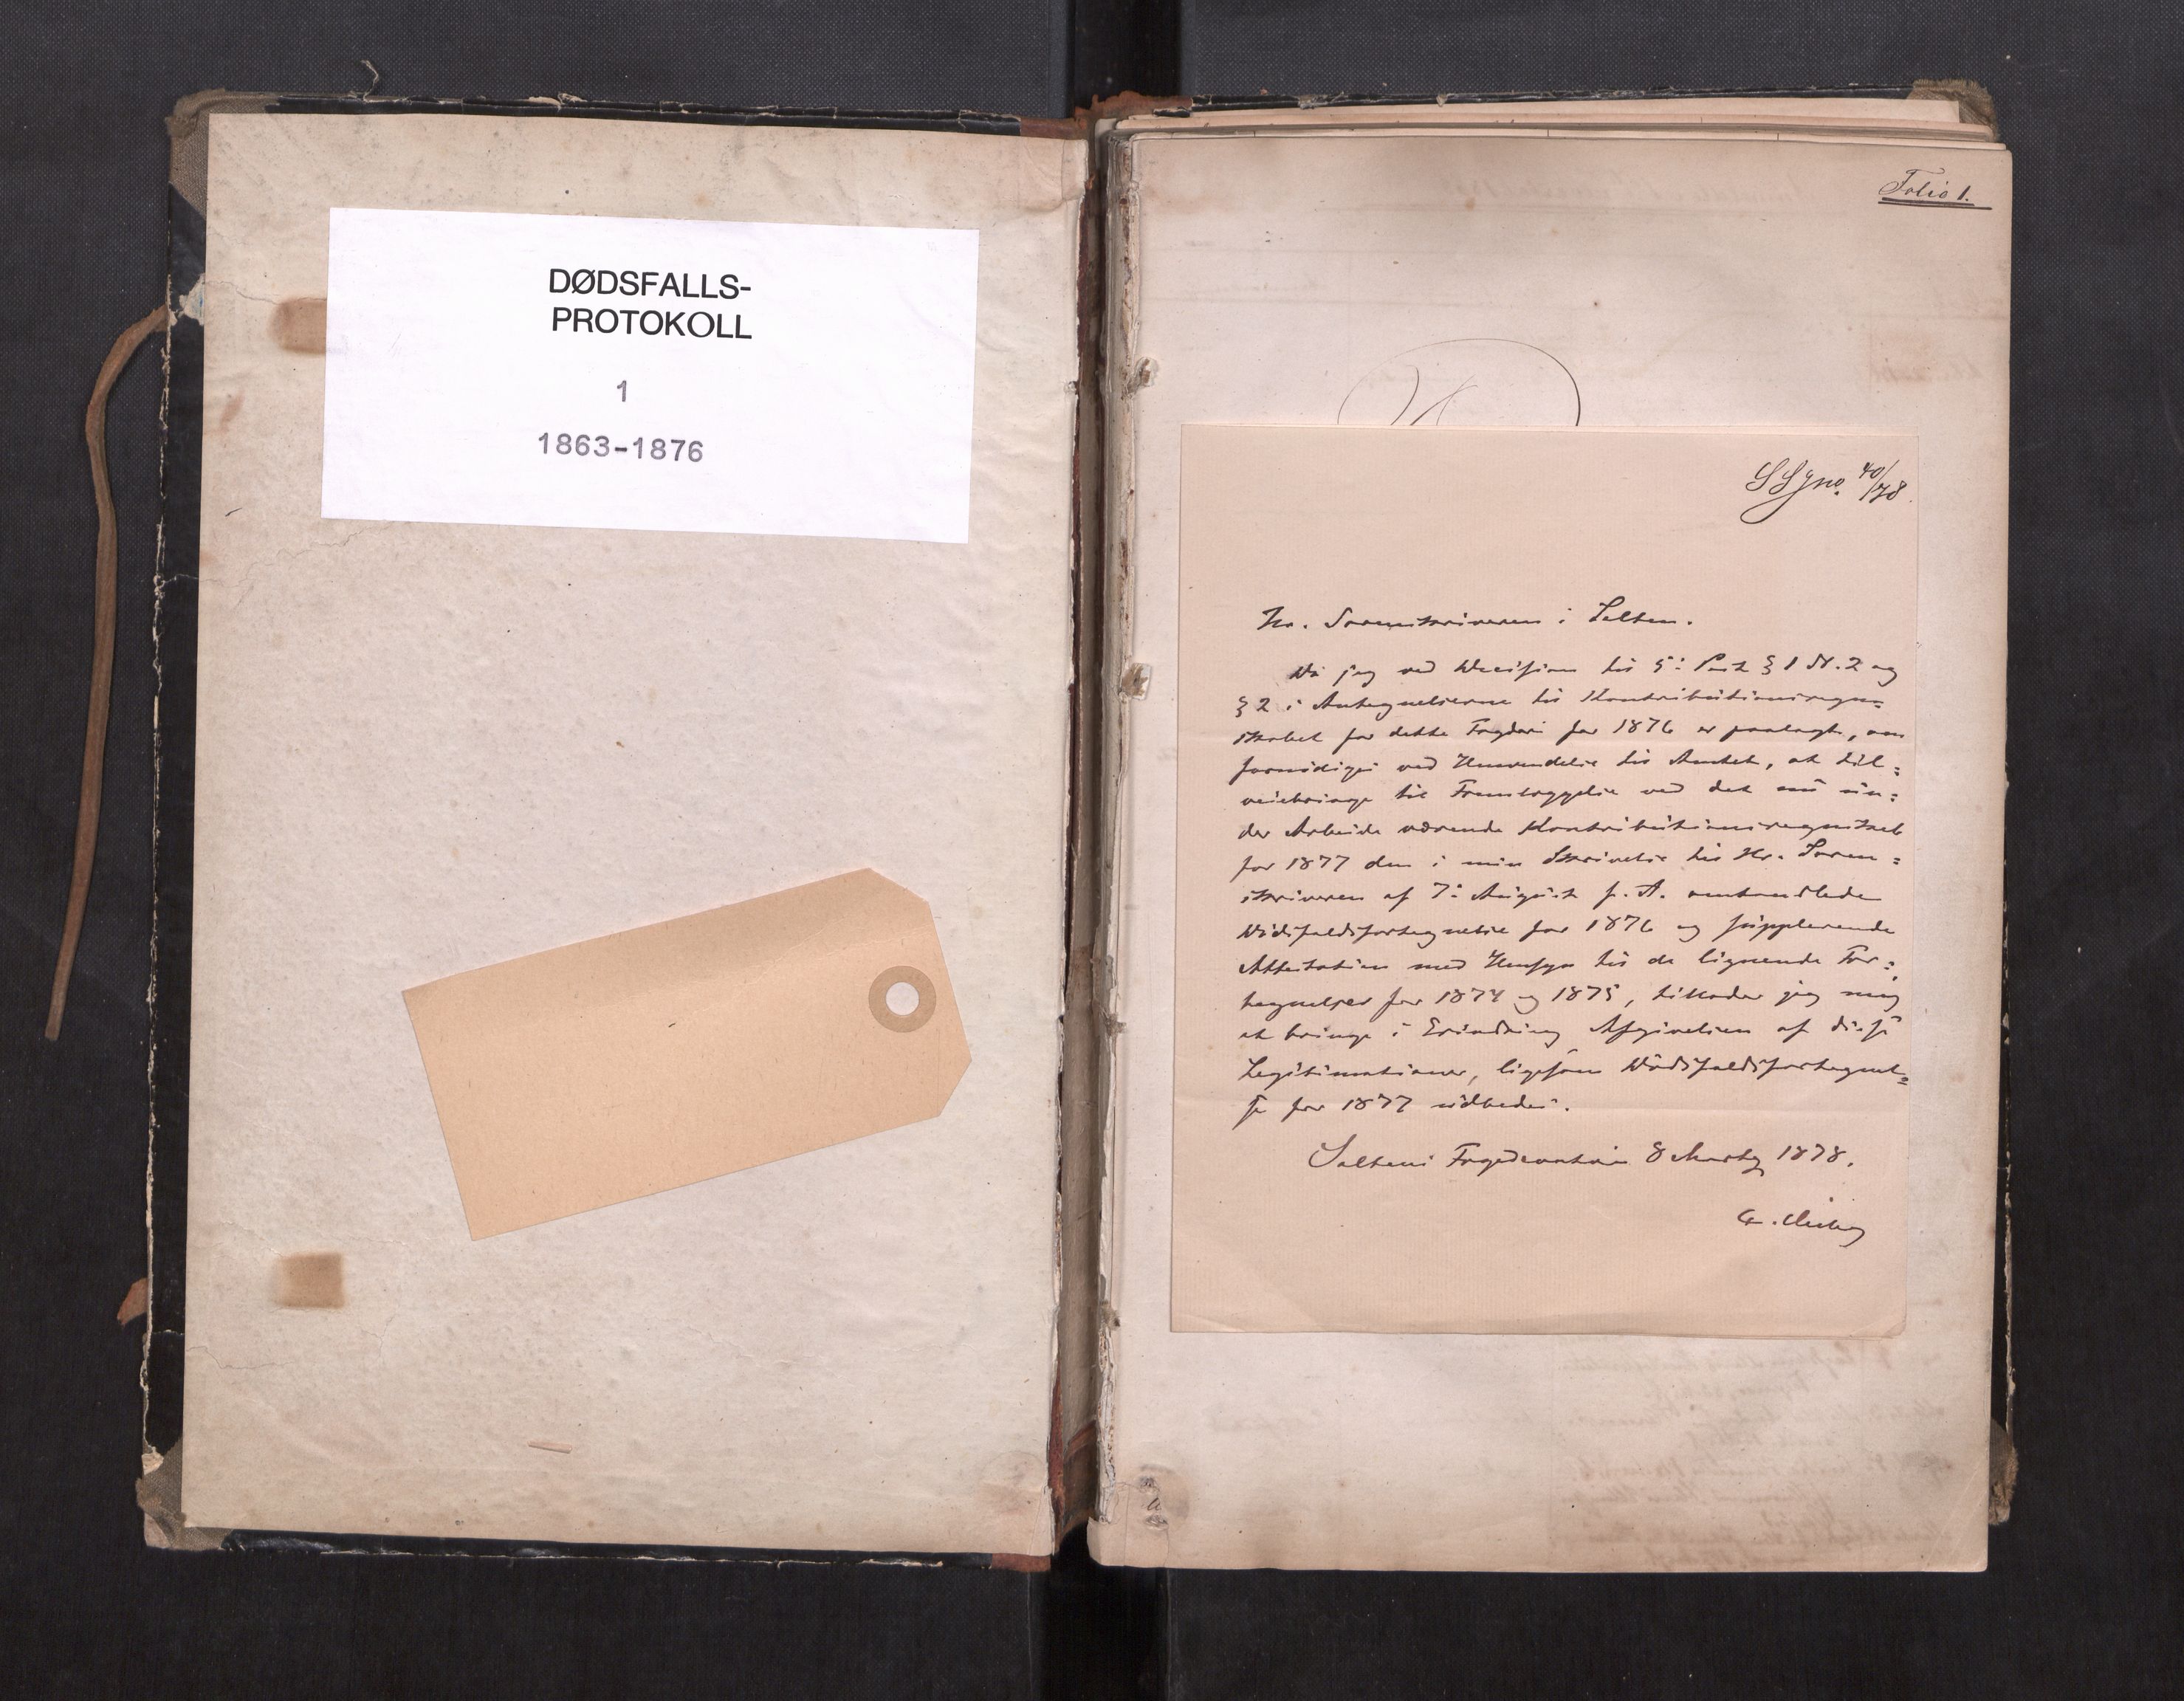 DØDSFALLS-
PROTOKOLL
1
1863-1876
Folio 1.
40/78
Hr. Sorenskriveren i Salten.
Da jeg ved Decision til 5: Post § 1 N. 2 og
§ 2 i Antegnelserne til Kontributionsregn=
skabet for dette Fogderi for 1876 er paalagt, om
fornödigt ved Henvendelse til Amtet, at til=
veiebringe til Fremlæggelse ved det nu un=
der Arbeide værende Kontributionsregnskab
for 1877 den i min Skrivelse til Hr. Soren=
skriveren af 7: August f. A. omhandlede
Dödsfaldsfortegnelse for 1876 og supplerende
Attestation med Hensyn til de lignende For=
tegnelser for 1874 og 1875, tillader jeg mig
at bringe i Erindring Afgivelsen af disse
Legitimationer, ligesom Dödsfaldsfortegnel=
se for 1877 udbedes.
Saltens Fogedcontoir 8 Marts 1878.